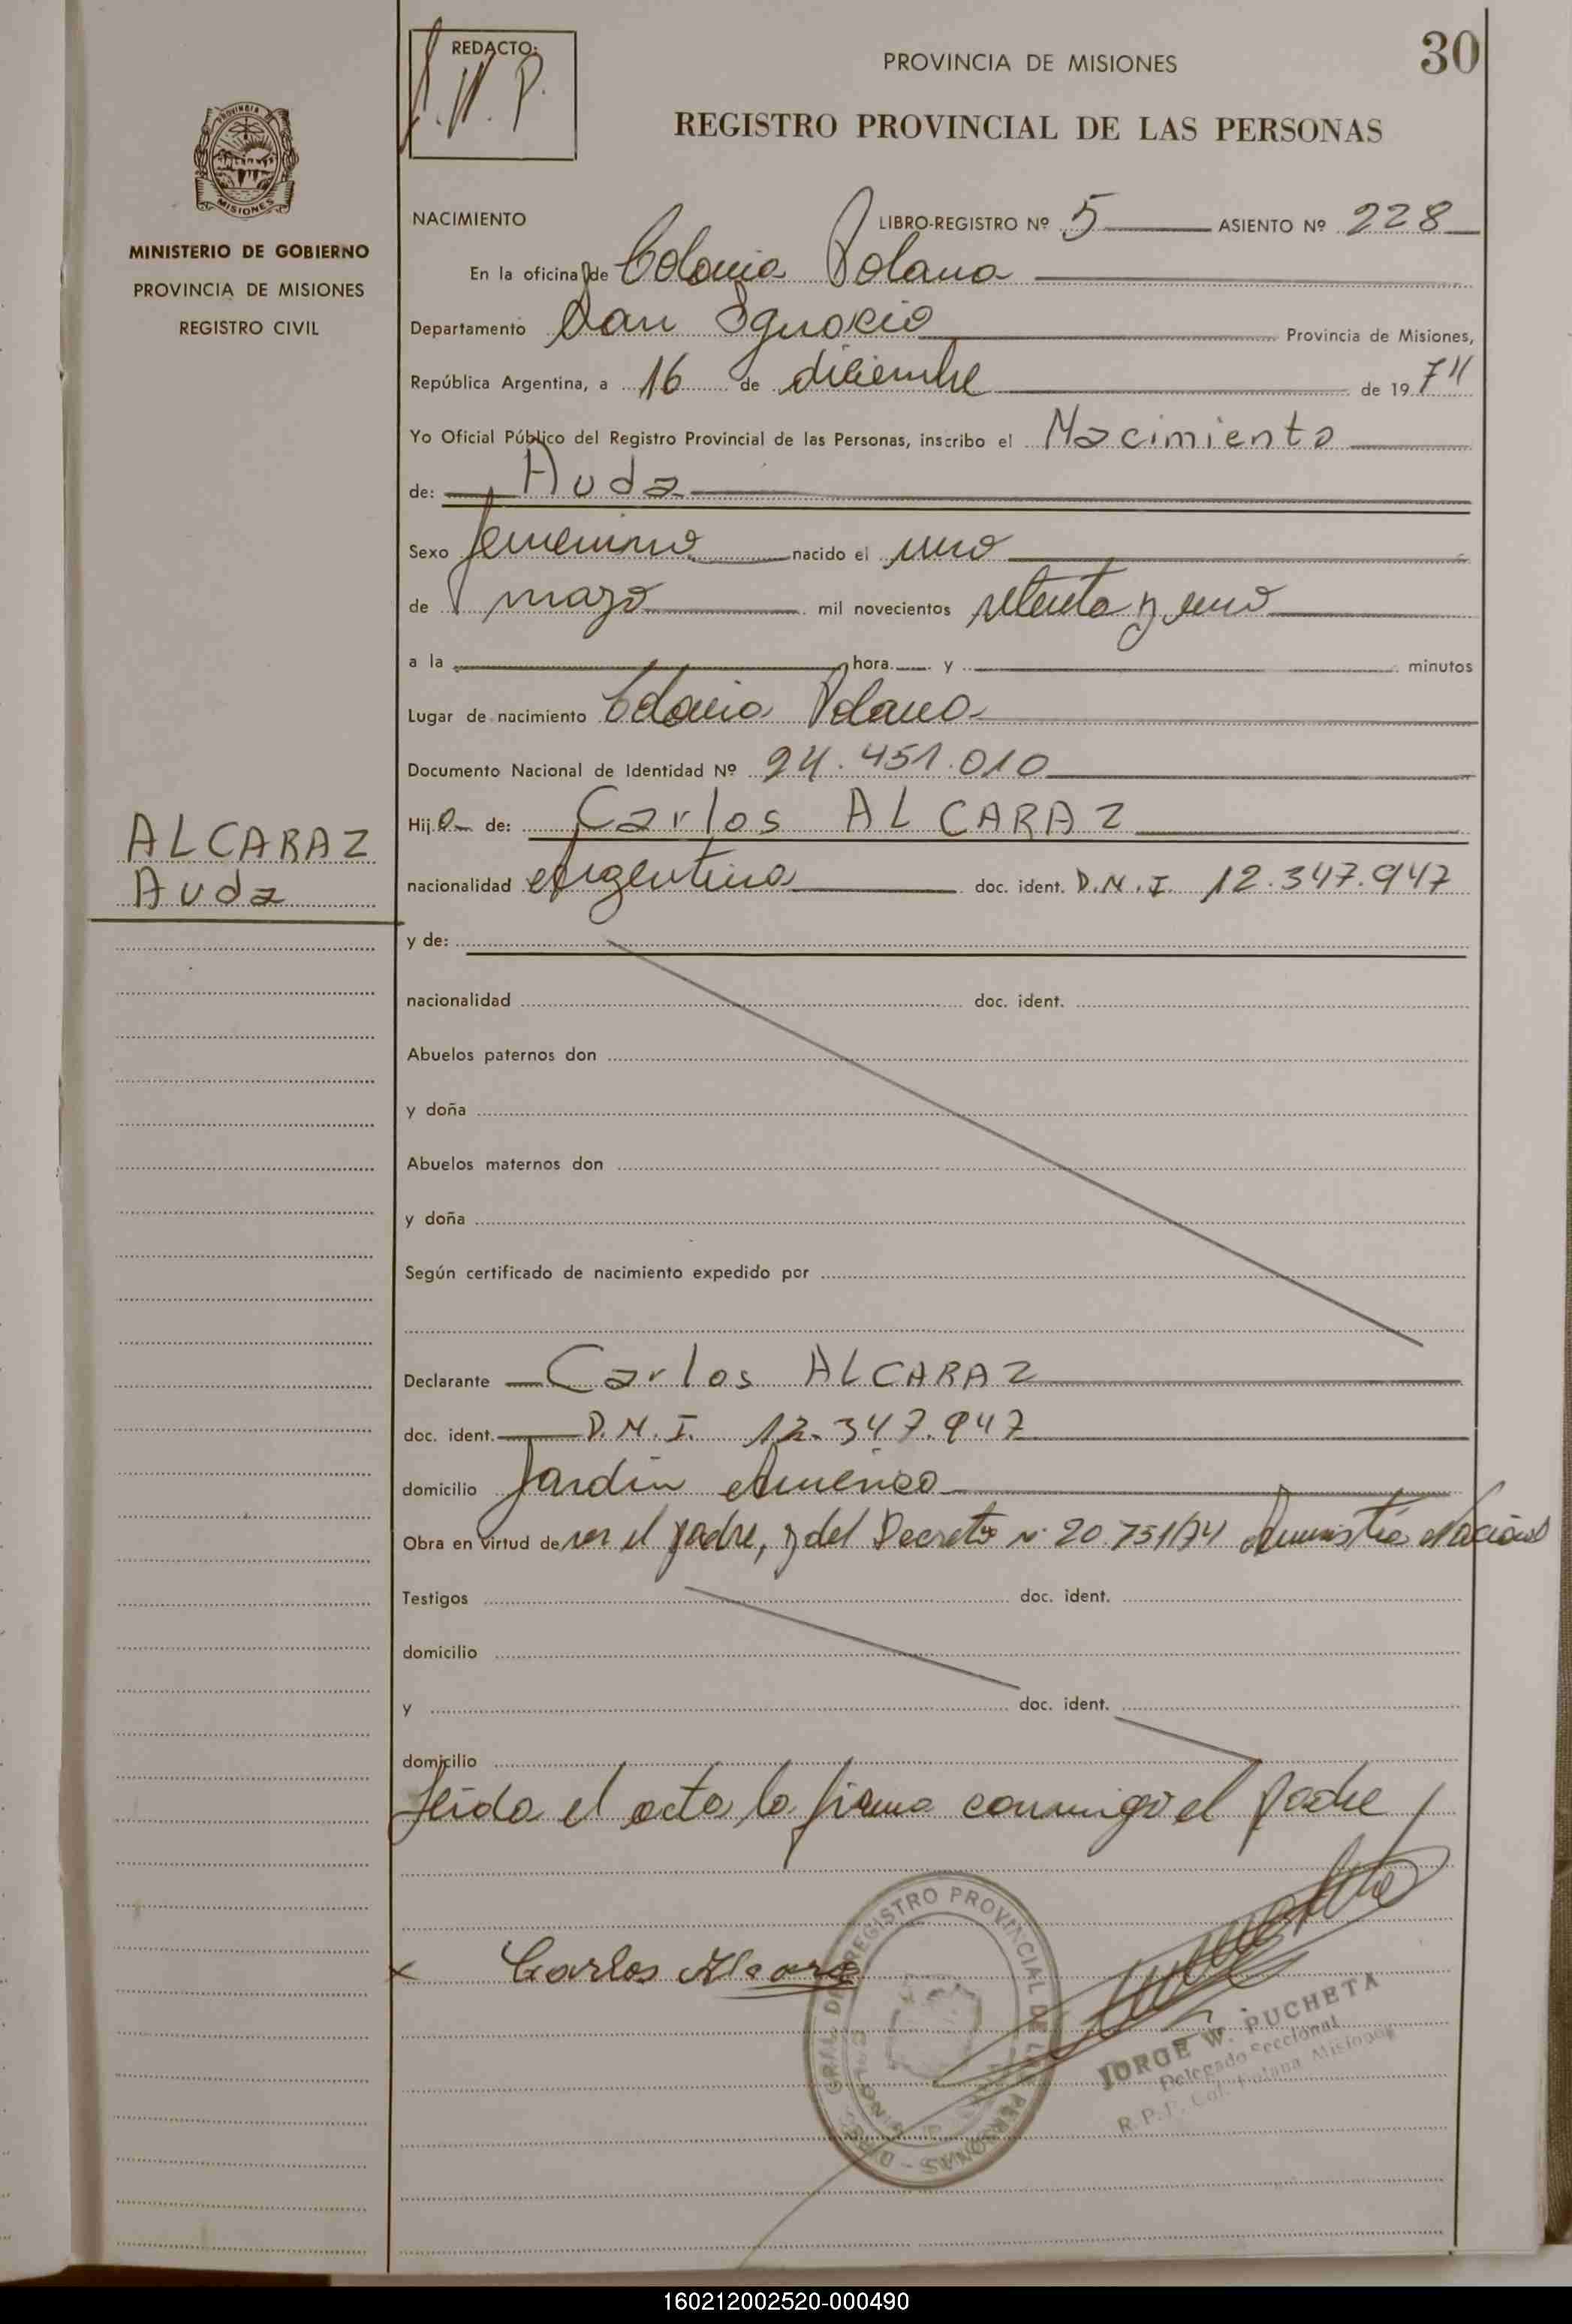 REDACTO:
J. W. P.
PROVINCIA DE MISIONES
30
REGISTRO PROVINCIAL DE LAS PERSONAS
MINISTERIO DE GOBIERNO
PROVINCIA DE MISIONES
REGISTRO CIVIL
NACIMIENTO LIBRO-REGISTRO Nº 5 ASIENTO Nº 228
En la oficina de Colonia Polana
Departamento San Ignacio Provincia de Misiones,
República Argentina, a 16 de diciembre de 1974
Yo Oficial Público del Registro Provincial de las Personas, inscribo el Nacimiento
de: Auda
Sexo femenino nacido el uno
de mazo mil novecientos setenta y uno
a la hora y minutos
Lugar de nacimiento Colonia Polana
Documento Nacional de Identidad Nº 24.451.010
ALCARAZ
Auda
Hija de: Carlos ALCARAZ
nacionalidad Argentina doc. ident. D.N.I. 12.347.947
y de:
nacionalidad doc. ident.
Abuelos paternos don
y doña
Abuelos maternos don
y doña
Según certificado de nacimiento expedido por
Declarante Carlos ALCARAZ
doc. ident. D.N.I. 12.347.947
domicilio Jardín América
Obra en virtud de ser el padre, y del Decreto Nº 20.751/74 Amnistía Nacional
Testigos doc. ident.
domicilio
y doc. ident.
domicilio
Leída el acta, la firma conmigo el padre
x Carlos Alcaraz
REGISTRO PROVINCIAL DE LAS PERSONAS - DIREC. GRAL. DEL
JORGE W. PUCHETA
Delegado Seccional
R.P.P. Col. Polana Misiones
160212002520-000490